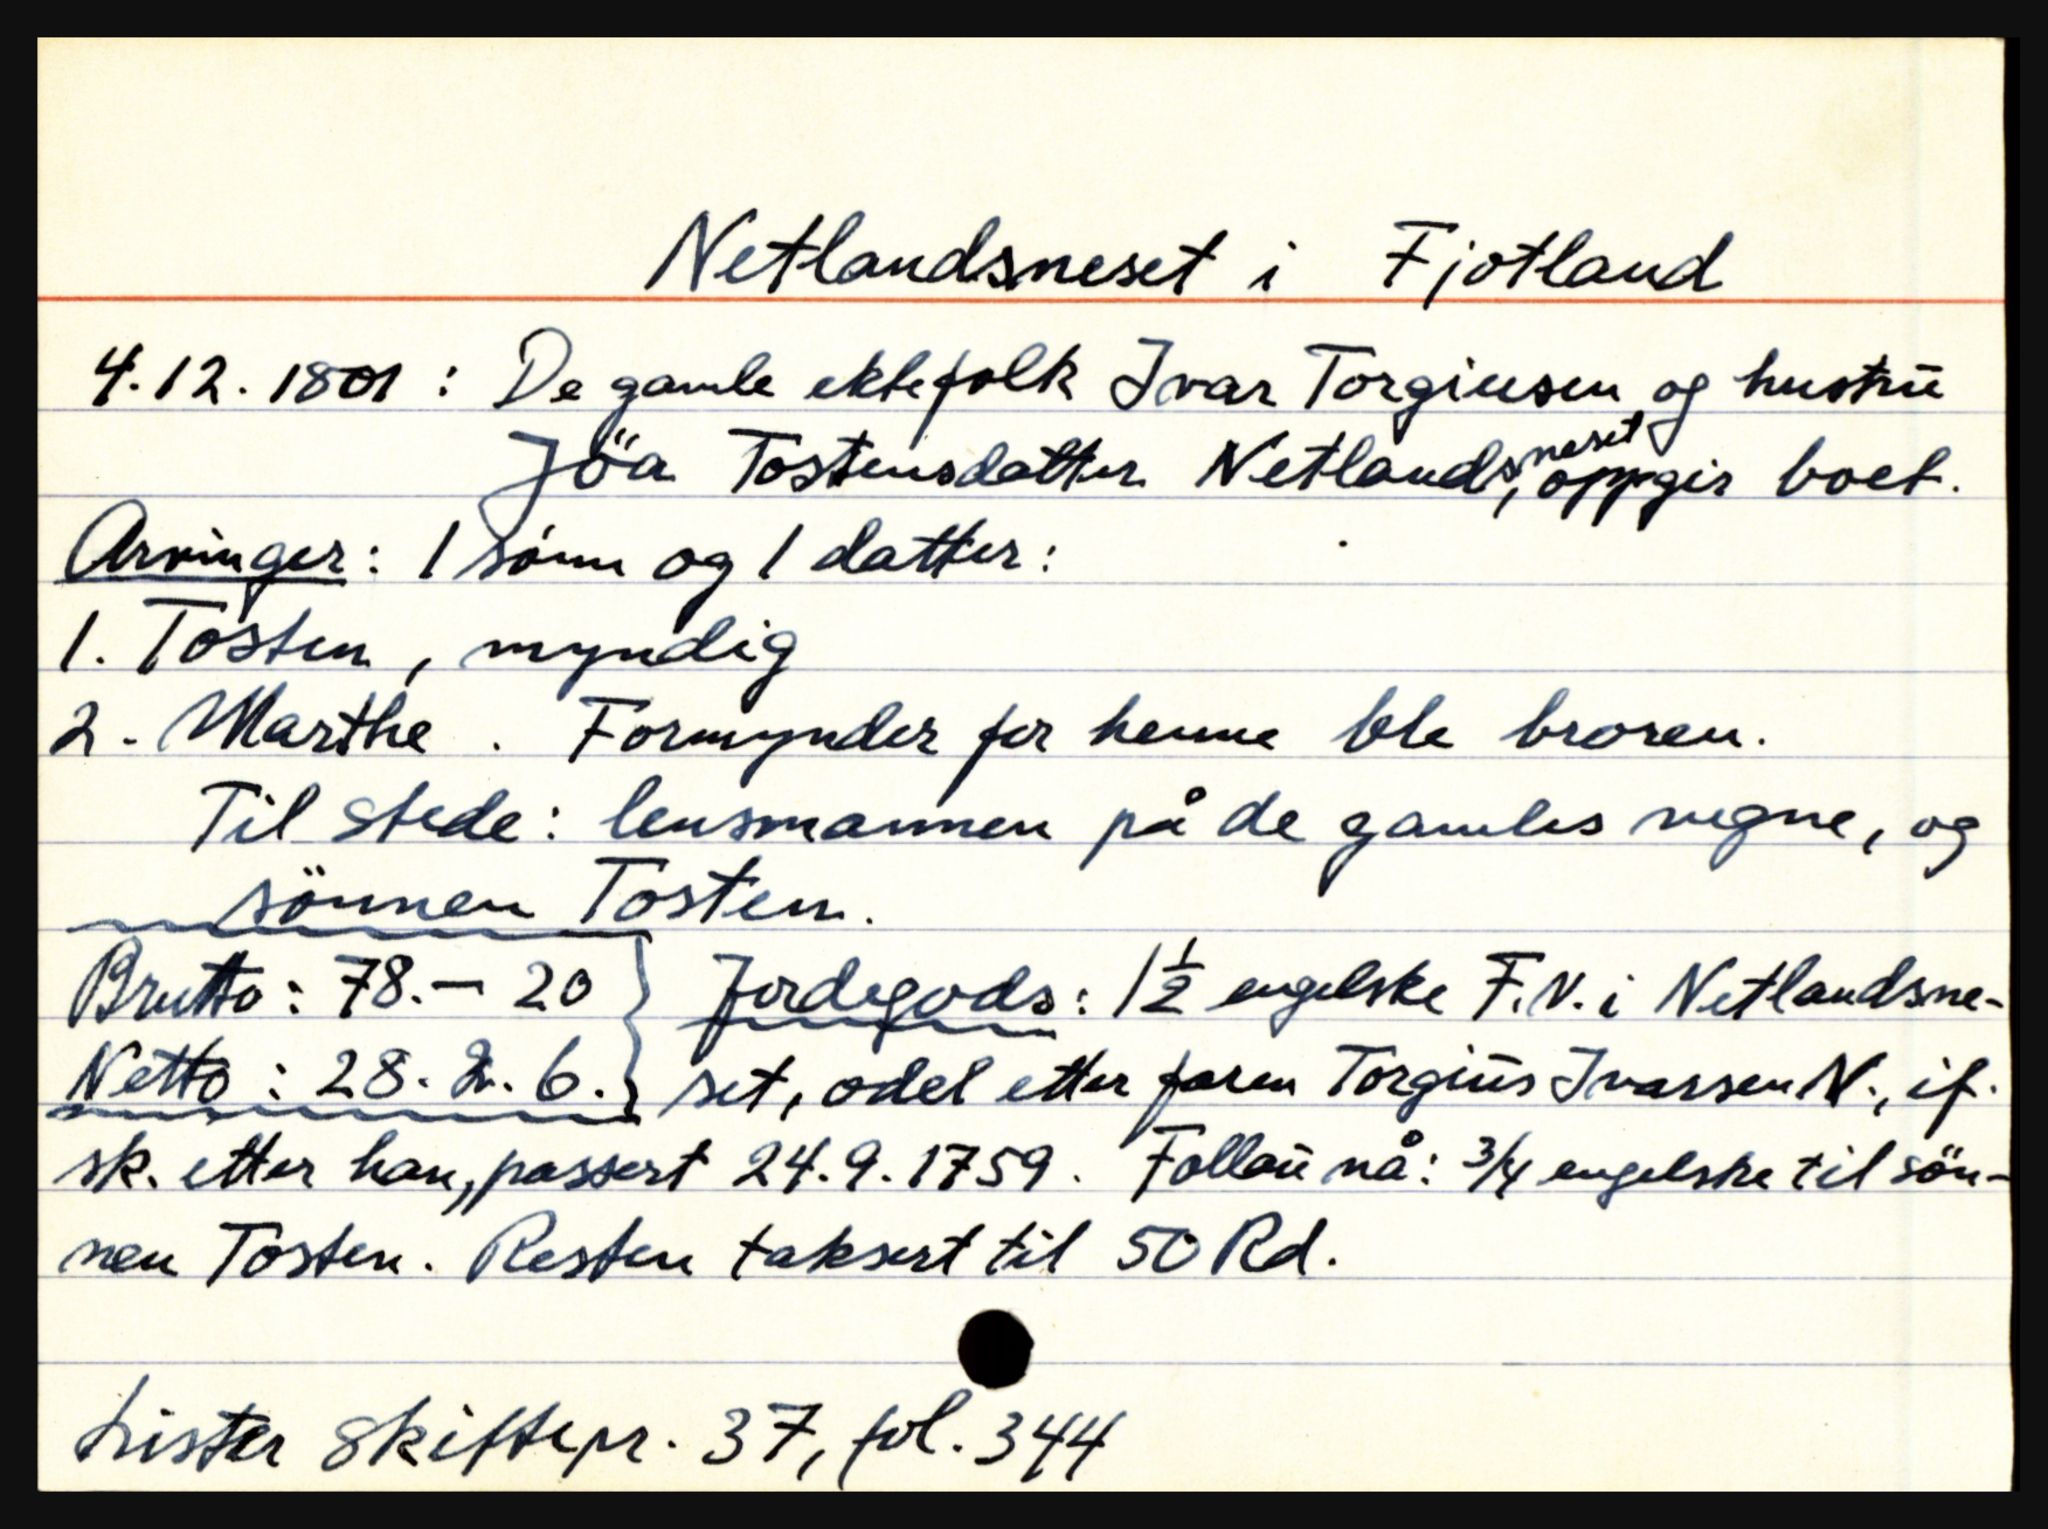 Netlandsneset i Fjotland
4.12.1801: De gamle ektefolk Ivar Torgiusen og hustru
Jöa Tostensdatter Netlandsneset, oppgir boet.
Arvinger: 1 sönn og 1 datter:
1. Tosten, myndig
2. Marthe. Formynder for henne ble broren.
Til stede: lensmannen på de gamles vegne, og
sönnen Tosten.
Brutto: 78.– 20 } Jordegods: 1½ engelske F.V. i Netlandsne-
Netto: 28.2.6. } set, odel etter faren Torgius Ivarssen N., if.
sk. etter han, passert 24.9.1759. Follau nå: 3/4 engelske til sön-
nen Tosten. Resten taksert til 50 Rd.
Lister skiftepr. 37, fol. 344